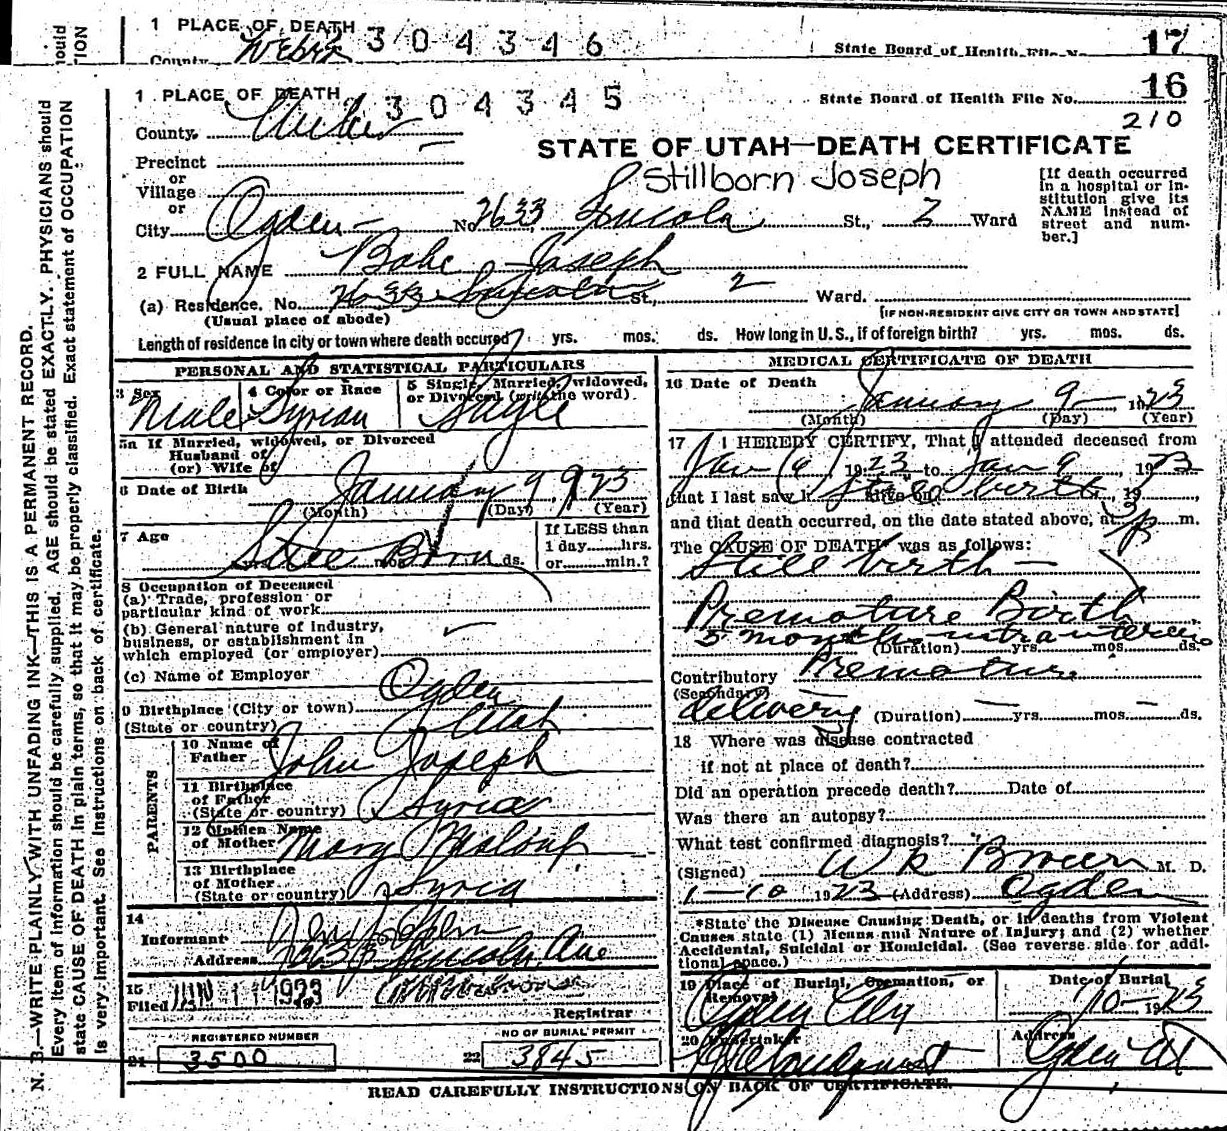 1 PLACE OF DEATH
County Weber
304346
State Board of Health File No.
17
1 PLACE OF DEATH
304345
State Board of Health File No. 16
210
County,
STATE OF UTAH—DEATH CERTIFICATE
Precinct
or
Village
Stillborn Joseph
[If death occurred in a hospital or institution give its NAME instead of street and number.]
or
City Ogden No 2633 Lincoln St., 2 Ward
2 FULL NAME Babe Joseph
(a) Residence. No. 2633 Lincoln St., 2 Ward.
(Usual place of abode)
[IF NON-RESIDENT GIVE CITY OR TOWN AND STATE]
Length of residence in city or town where death occured yrs. mos. ds. How long in U.S., if of foreign birth? yrs. mos. ds.
PERSONAL AND STATISTICAL PARTICULARS
3 Sex
Male
4 Color or Race
Syrian
5 Single, Married, widowed, or Divorced (write the word).
Single
5a If Married, widowed, or Divorced
Husband of
(or) Wife of
6 Date of Birth January 9 1923
(Month) (Day) (Year)
7 Age
Still Born
mos ds.
If LESS than
1 day hrs.
or min.?
8 Occupation of Deceased
(a) Trade, profession or
particular kind of work
(b) General nature of industry,
business, or establishment in
which employed (or employer)
(c) Name of Employer
9 Birthplace (City or town) Ogden
(State or country) Utah
PARENTS
10 Name of
Father John Joseph
11 Birthplace
of Father
(State or country) Syria
12 Maiden Name
of Mother Mary
13 Birthplace
of Mother
(State or country) Syria
14
Informant
Address 2633 Lincoln Ave
15
Filed JAN 11 1923
Registrar
REGISTERED NUMBER
21 3500
NO OF BURIAL PERMIT
22 3845
MEDICAL CERTIFICATE OF DEATH
16 Date of Death
January 9 1923
(Month) (Day) (Year)
17 I HEREBY CERTIFY, That I attended deceased from
Jan 9 1923 to Jan 9, 1923
that I last saw h alive on Still birth, 19
and that death occurred, on the date stated above, at 3 p m.
The CAUSE OF DEATH* was as follows:
Still birth —
Premature Birth
5 months intra uterine
(Duration) yrs. mos. ds.
Contributory Premature
(Secondary)
delivery (Duration) yrs. mos ds.
18 Where was disease contracted
if not at place of death?
Did an operation precede death? Date of
Was there an autopsy?
What test confirmed diagnosis?
(Signed) M. D.
1-10 1923 (Address) Ogden
*State the Disease Causing Death, or in deaths from Violent
Causes state (1) Means and Nature of Injury; and (2) whether
Accidental, Suicidal or Homicidal. (See reverse side for addi-
tional space.)
19 Place of Burial, Cremation, or
Removal
Ogden City
Date of Burial
1/10-1923
20 Undertaker
Address
Ogden Ut
READ CAREFULLY INSTRUCTIONS ON BACK OF CERTIFICATE.
N. B.—WRITE PLAINLY WITH UNFADING INK—THIS IS A PERMANENT RECORD.
Every item of information should be carefully supplied. AGE should be stated EXACTLY. PHYSICIANS should
state CAUSE OF DEATH in plain terms, so that it may be properly classified. Exact statement of OCCUPATION
is very important. See Instructions on back of certificate.